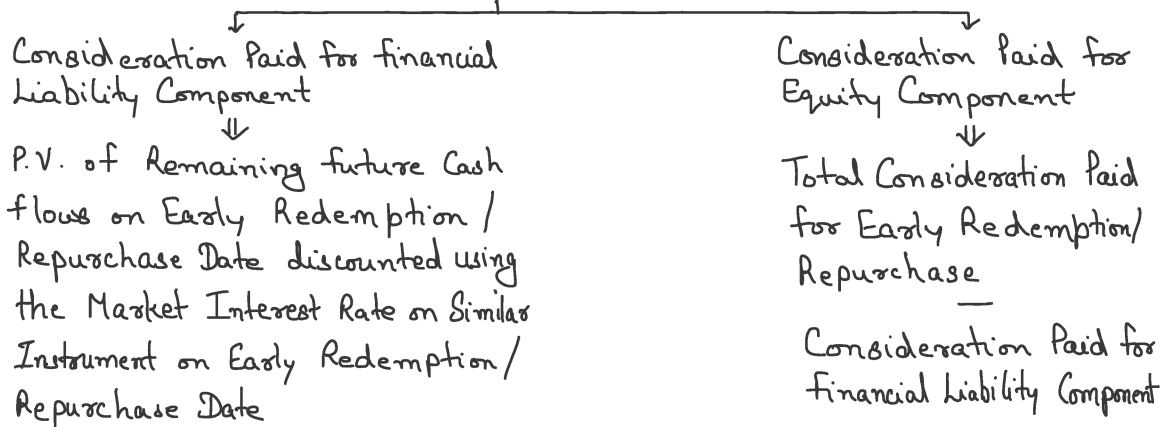 Consideration Paid for financial
Liability Component
⇓
P.V. of Remaining future Cash
flows on Early Redemption /
Repurchase Date discounted using
the Market Interest Rate on Similar
Instrument on Early Redemption /
Repurchase Date
Consideration Paid for
Equity Component
⇓
Total Consideration Paid
for Early Redemption/
Repurchase
—
Consideration Paid for
financial Liability Component